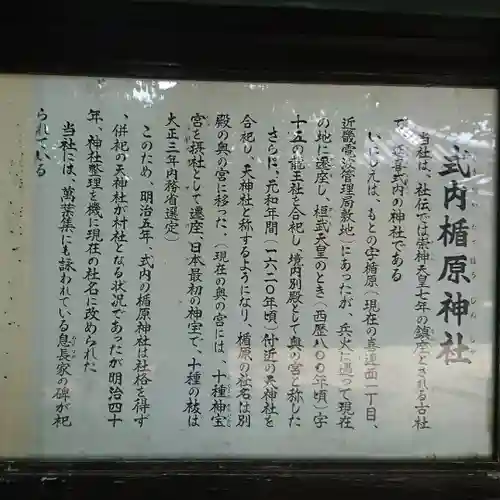 式内楯原神社
しきないたてはらじんじゃ
当社は、社伝では崇神天皇七年の鎮座とされる古社
で、延喜式内の神社である
いにしえは、もとの字楯原(現在の喜連西一丁目、
近畿電波管理局敷地)にあったが、兵火に遇って現在
の地に遷座し、桓武天皇のとき(西歴八〇〇年頃)字
十五の龍王社を合祀し、境内別殿として奥の宮と称した
さらに、元和年間(一六二〇年頃)付近の天神社を
合祀し、天神社と称するようになり、楯原の社名は別
殿の奥の宮に移った、(現在の奥の宮には、十種神宝
宮を摂社として遷座、日本最初の神宝で、十種の祓は
大正三年内務省選定)
このため、明治五年、式内の楯原神社は社格を得ず
、併祀の天神社が村社となる状況であったが明治四十
年、神社整理を機に現在の社名に改められた
当社には、萬葉集にも詠われている息長家の碑が祀
られている